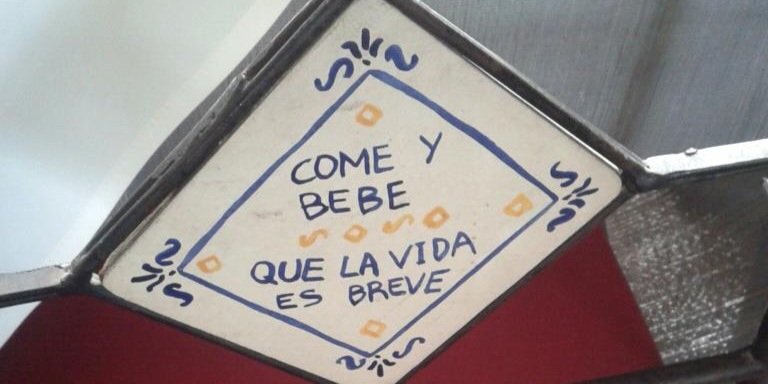 COME Y
BEBE
QUE LA VIDA
ES BREVE